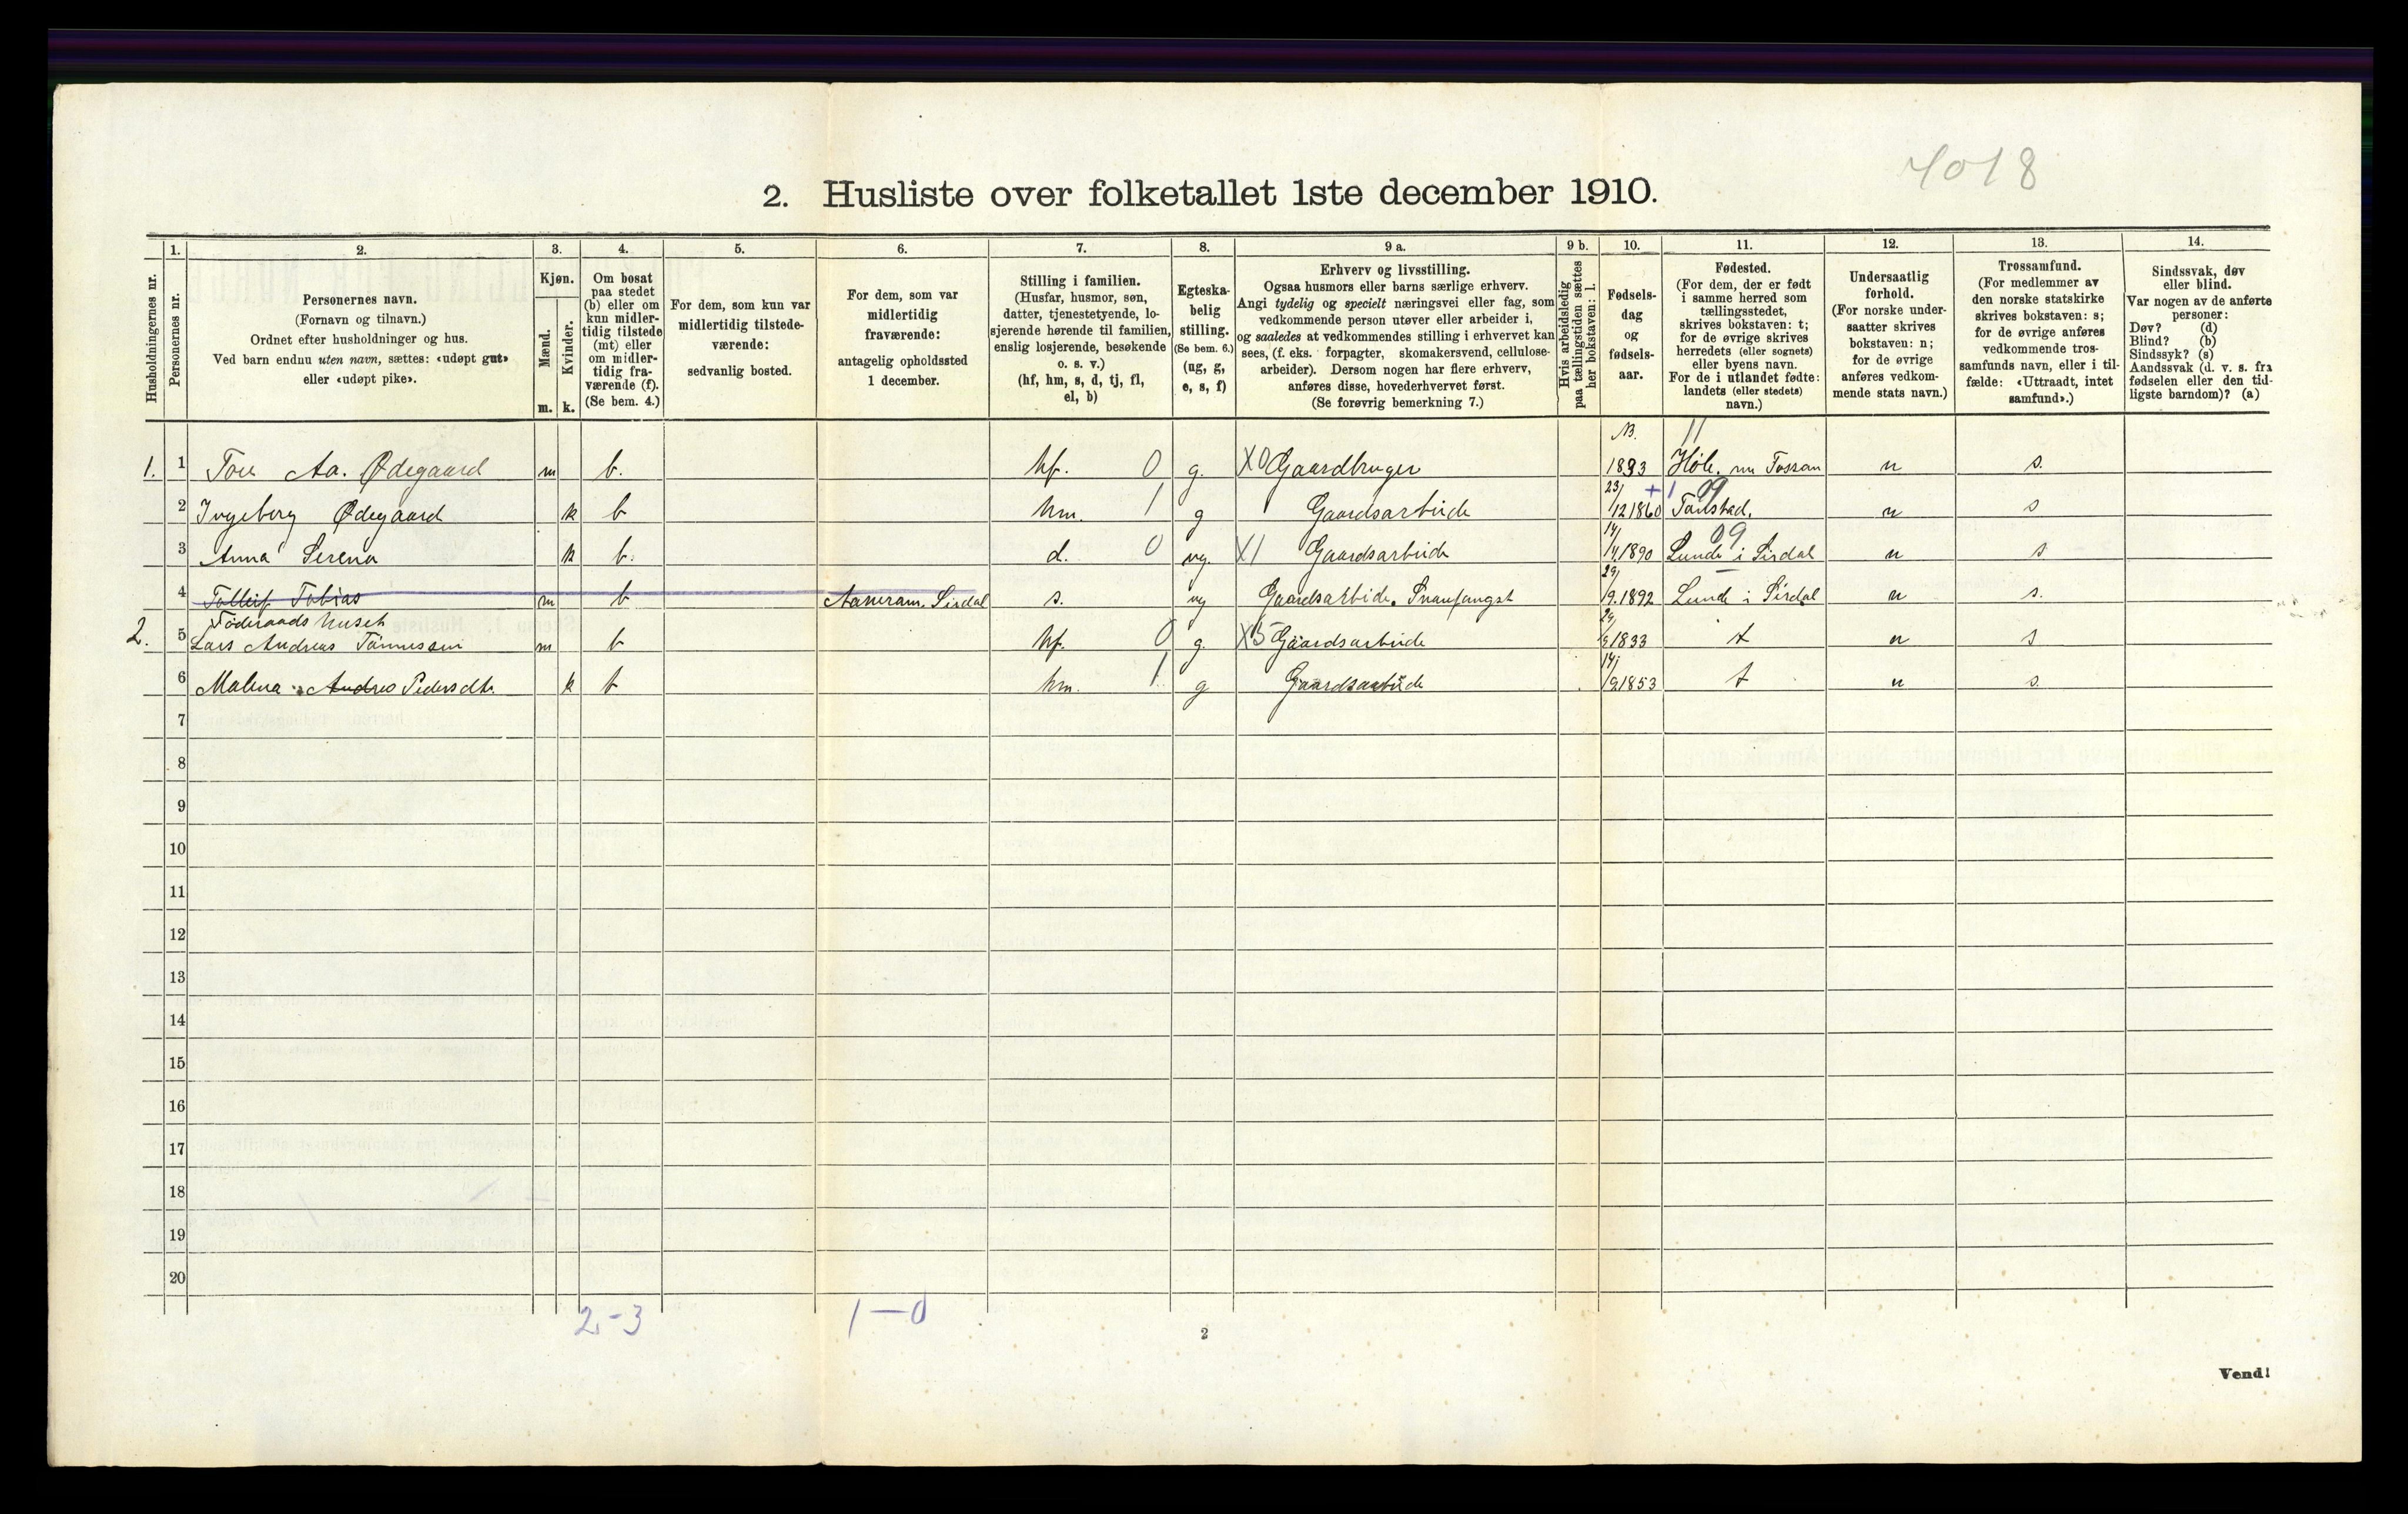 4018
2. Husliste over folketallet 1ste december 1910.
Husholdningernes nr.
1.
Personernes nr.
2.
Personernes navn.
(Fornavn og tilnavn.)
Ordnet efter husholdninger og hus.
Ved barn endnu uten navn, sættes: «udøpt gut»
eller «udøpt pike».
3.
Kjøn.
Mænd.
Kvinder.
m. k.
4.
Om bosat
paa stedet
(b) eller om
kun midler-
tidig tilstede
(mt) eller
om midler-
tidig fra-
værende (f).
(Se bem. 4.)
5.
For dem, som kun var
midlertidig tilstede-
værende:
sedvanlig bosted.
6.
For dem, som var
midlertidig
fraværende:
antagelig opholdssted
1 december.
7.
Stilling i familien.
(Husfar, husmor, søn,
datter, tjenestetyende, lo-
sjerende hørende til familien,
enslig losjerende, besøkende
o. s. v.)
(hf, hm, s, d, tj, fl,
el, b)
8.
Egteska-
belig
stilling.
(Se bem. 6.)
(ug, g,
e, s, f)
9 a.
Erhverv og livsstilling.
Ogsaa husmors eller barns særlige erhverv.
Angi tydelig og specielt næringsvei eller fag, som
vedkommende person utøver eller arbeider i,
og saaledes at vedkommendes stilling i erhvervet kan
sees, (f. eks. forpagter, skomakersvend, cellulose-
arbeider). Dersom nogen har flere erhverv,
anføres disse, hovederhvervet først.
(Se forøvrig bemerkning 7.)
9 b.
Hvis arbeidsledig
paa tællingstiden sættes
her bokstaven: l.
10.
Fødsels-
dag
og
fødsels-
aar.
11.
Fødested.
(For dem, der er født
i samme herred som
tællingsstedet,
skrives bokstaven: t;
for de øvrige skrives
herredets (eller sognets)
eller byens navn.
For de i utlandet fødte:
landets (eller stedets)
navn.)
12.
Undersaatlig
forhold.
(For norske under-
saatter skrives
bokstaven: n;
for de øvrige
anføres vedkom-
mende stats navn.)
13.
Trossamfund.
(For medlemmer av
den norske statskirke
skrives bokstaven: s;
for de øvrige anføres
vedkommende tros-
samfunds navn, eller i til-
fælde: «Uttraadt, intet
samfund».)
14.
Sindssvak, døv
eller blind.
Var nogen av de anførte
personer:
Døv? (d)
Blind? (b)
Sindssyk? (s)
Aandssvak (d. v. s. fra
fødselen eller den tid-
ligste barndom)? (a)
1. 1 Tore Aa. Ødegaard m b. hf. 0 g. X0 Gaardbruger 1883 Høle. n s.
2 Ingeborg Ødegaard k b hm. 1 g Gaardsarbeide 23/12 1860 n s
3 Anna Serena k b. d. 0 ug. X1 Gaardsarbeide 14/4 1890 09 Lunde i Sirdal n s
4 Tolleif Tobias m b Aaneram. Sirdal s. ug Gaardsarbeide. Snarefangst 29/9 1892 Lunde i Sirdal n s.
Føderaads huset
2. 5 Lars Andreas Tønnessen m b hf. 0 g. X5 Gaardsarbeide 29/9 1833 t n s
6 Malena Andrea Pedersdtr k b hm. 1 g Gaardsarbeide 14/9 1853 t n s.
7
8
9
10
11
12
13
14
15
16
17
18
19
20
2-3 1-0
2
Vend!